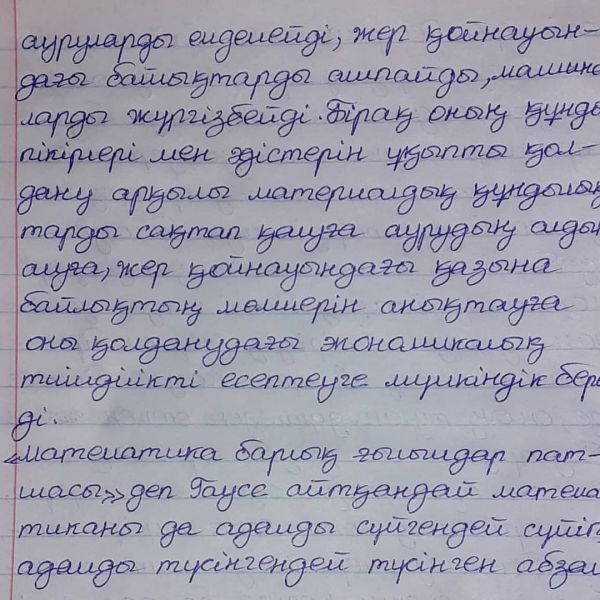 ауруларды емдемейді, жер қойнауын-
дағы байықтарды ашпайды, машина
ларды жүргізбейді. Бірақ оның құнды
пікірлері мен әдістерін ұқыпты қол-
дану арқылы материалдық құндылық
тарды сақтап қалуға аурудың алдын
алуға, жер қойнауындағы қазына
байлықтың мөлшерін анықтауға
оны қолданудағы экономикалық
тиімділікті есептеуге мүмкіндік бере
ді.
«математика барлық ғылымдар пат-
шасы» деп Гаусс айтқандай матема
тиканы да адамды сүйгендей сүйіп,
адамды түсінгендей түсінген абзал